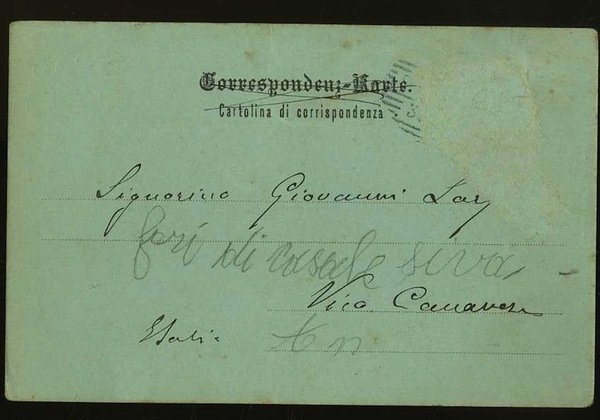 Correspondenz-Karte.
Cartolina di corrispondenza
Signorino Giovanni
di casale siva
Vico Canavese
Italia